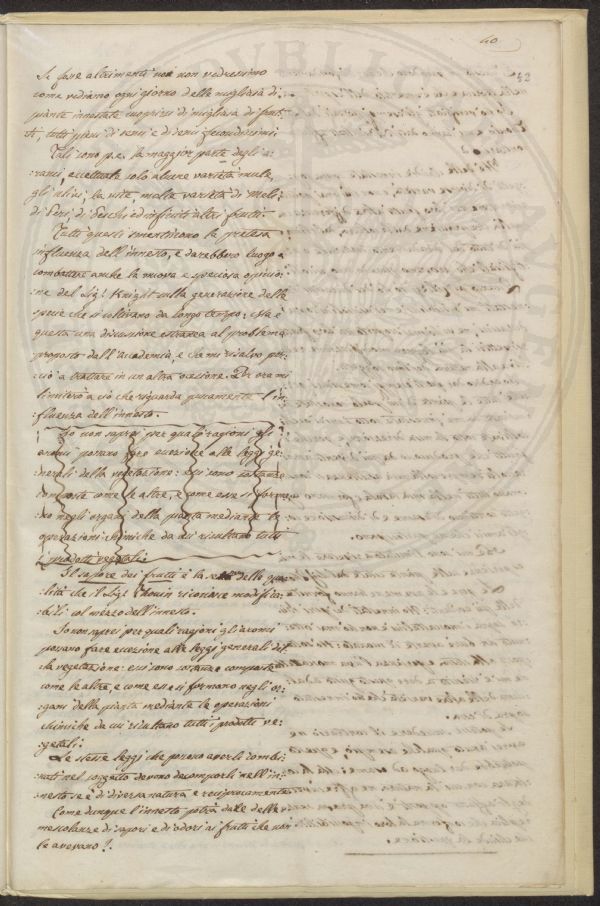 40
42
Se fosse altrimenti noi non vedressimo
come vediamo ogni giorno delle migliaia di
piante innestate coprirsi di migliaia di frut-
ti, tutti pieni di semi e di semi fecondissimi.
Tali sono p.e. la maggior parte degli a-
ranci, eccettuate solo alcune varietà mule,
gli ulivi, la vite, molte varietà di Meli,
di Peri, di Peschi ed infiniti altri frutti.
Tutti questi smentiscono la pretesa
influenza dell'innesto, e darebbero luogo a
combattere anche la nuova e speciosa opinio-
ne del Sig.r Knight sulla generazione delle
specie che si coltivano da longo tempo: ma è
questa una discussione estranea al problema
proposto dall'Accademia, e che mi risalvo per-
ciò a trattare in un altra occasione. Per ora mi
limiterò a ciò che risguarda puramente l'in-
fluenza dell'innesto.
Io non saprei per quali ragioni gli
aromi possano fare eccezione alle leggi ge-
nerali della vegetazione: essi sono sostanze
composte come le altre, e come esse si forma-
no negli organi della pianta mediante le
operazioni chimiche da cui risultano tutti
i prodotti vegetali.
Il sapore dei frutti è la delle qua-
lità che il Sig.r Thouin riconosce modifica-
bili col mezzo dell'innesto.
Io non saprei per quali ragioni gli aromi
possano fare eccezione alle leggi generali del-
la vegetazione: essi sono sostanze composte
come le altre, e come esse si formano negli or-
gani della pianta mediante le operazioni
chimiche da cui risultano tutti i prodotti ve-
getali.
Le stesse leggi che possono averli combi-
nati nel soggetto devono decomporli nell'in-
nesto se è di diversa natura e reciprocamente.
Come dunque l'innesto potrà dare delle
mescolanze di sapori e di odori ai frutti che non
le avevano?